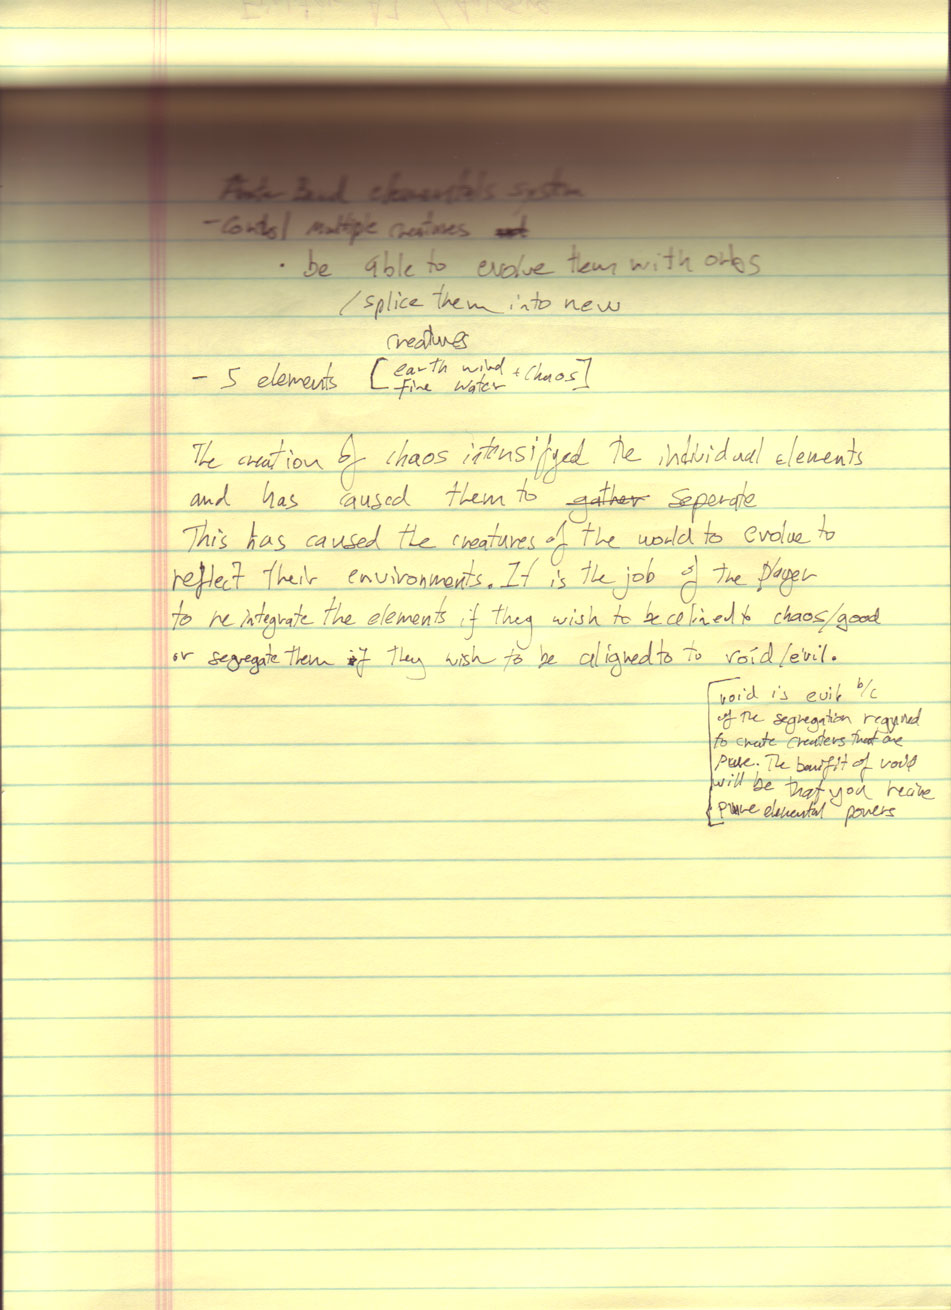 elementals system
- control multiple creatures
· be able to evolve them with orbs
/splice them into new
creatures
- 5 elements [earth wind + chaos]
fire water
The creation of chaos intensifyed the individual elements
and has caused them to gather seperate
This has caused the creatures of the world to evolve to
reflect their environments. It is the job of the player
to reintegrate the elements if they wish to be to chaos/good
or segregate them if they wish to be aligned to to void/evil.
void is evil b/c
of the segregation required
to create that are
pure. The of void
will be that you recive
pure elemental powers